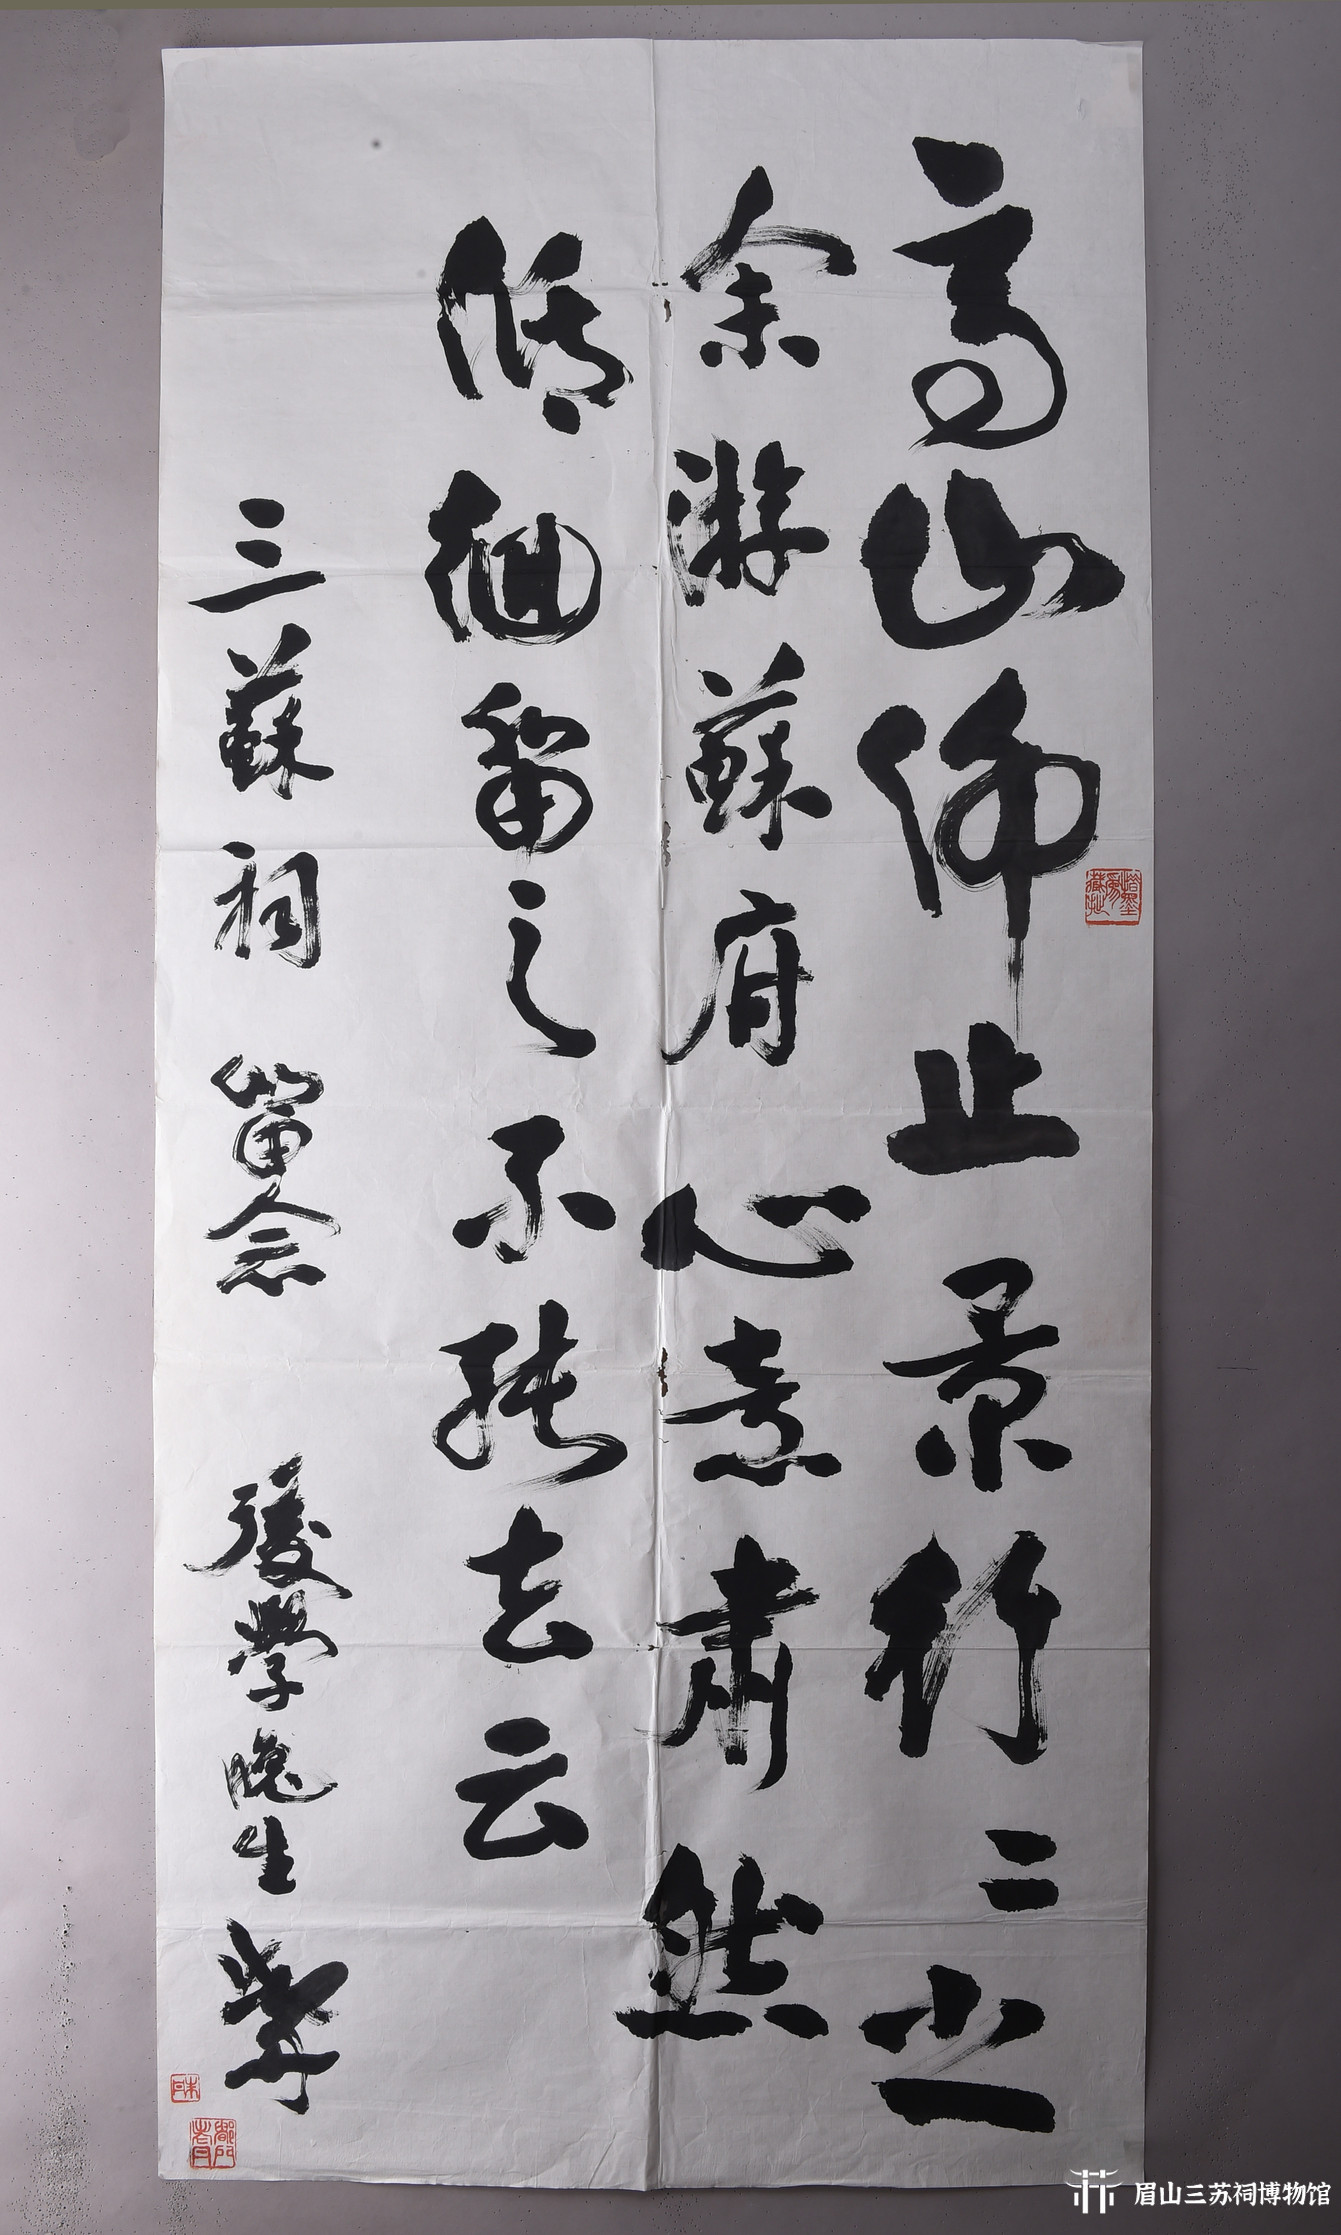 高山仰止景行〻止
余游蘇府心意肅然
低徊留之不能去云
三蘇祠 留念 後學晚生
眉山三苏祠博物馆